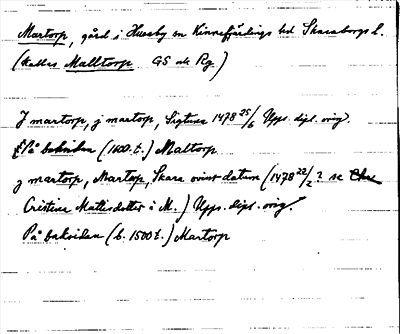 Martorp, gård i Husaby sn Kinnefjärdings hd Skaraborgs l.
(kallas Malltorp GS ok Rg.)
J martorp, j martorp, Sigtuna 1478 25/6 Upps. dipl. orig.
På baksidan (1600-t.) Maltorp
j martorp, Martop, Skara ovisst datum (1478 22/2? se
Cristina Mattisdotter i M.) Upps. dipl. orig.
På baksidan (b. 1500 t.) Martorp